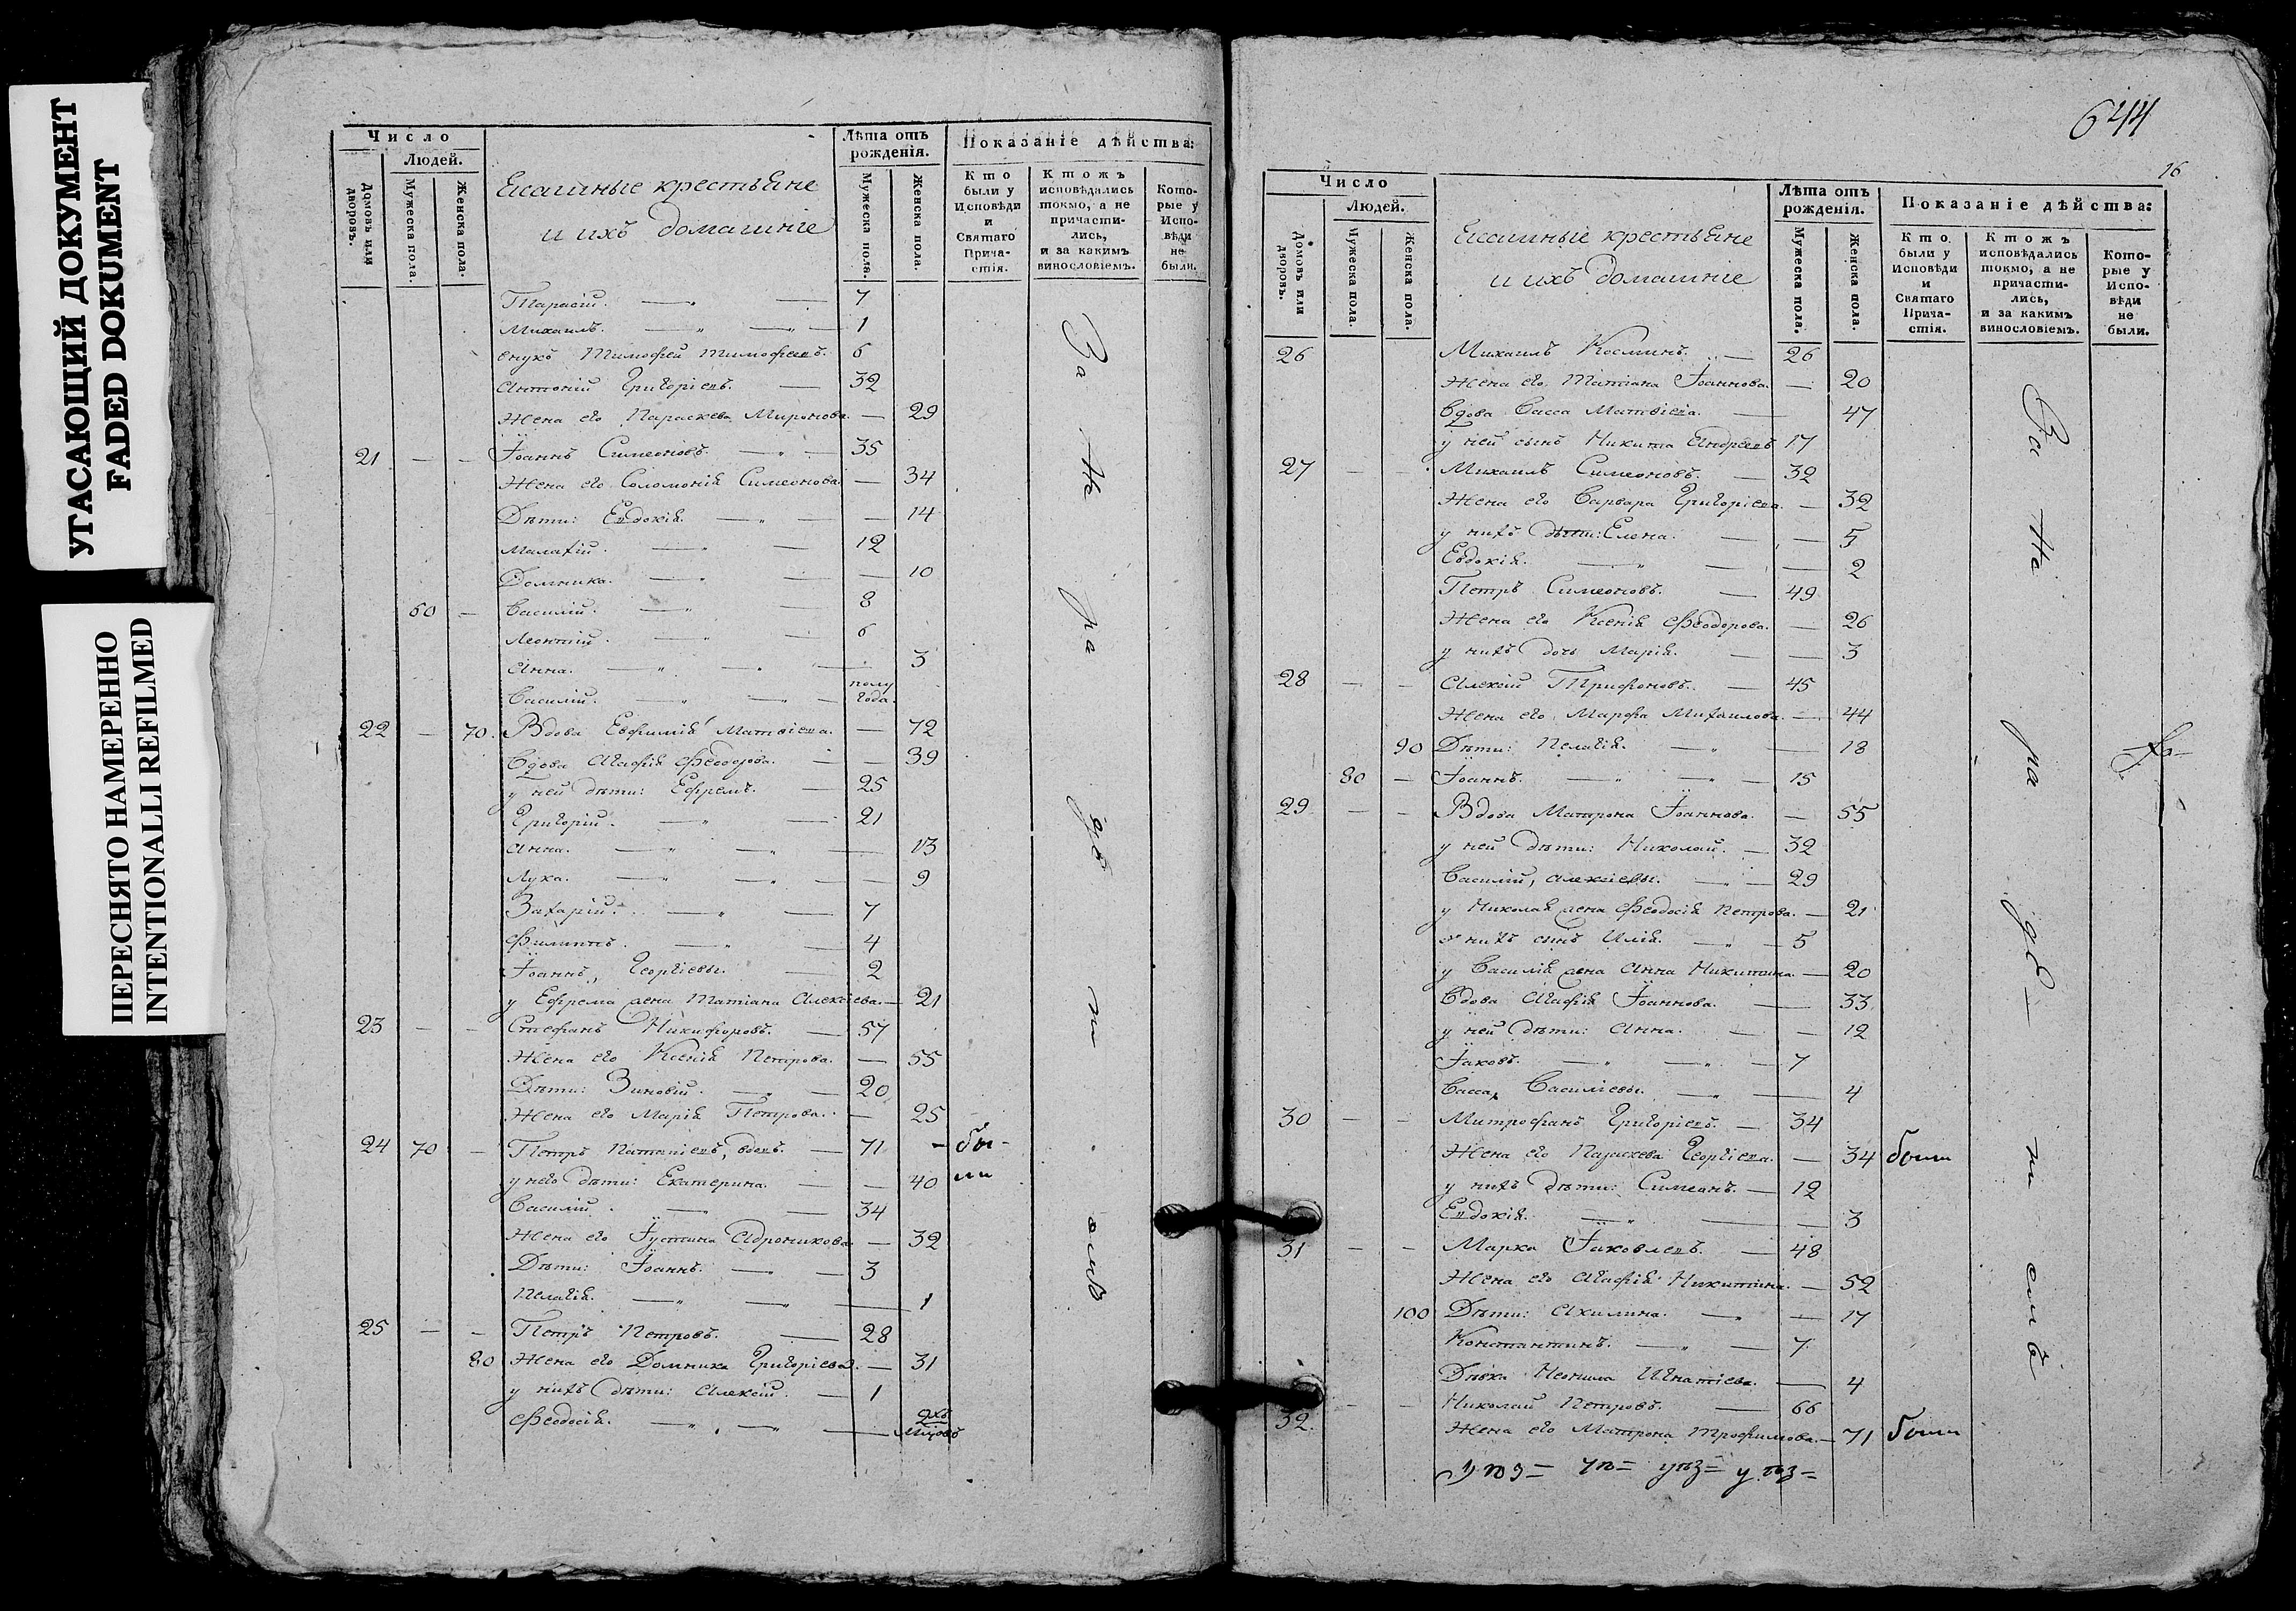 УГАСАЮЩИЙ ДОКУМЕНТ
FADED DOKUMENT
ПЕРЕСНЯТО НАМЕРЕННО
INTENTIONALLI REFILMED
Число
Людей.
Домовъ или дворовъ.
Мужеска пола.
Женска пола.
крестьяне
и ихъ домашніе
Лѣта отъ рожденія.
Мужеска пола.
Женска пола.
Показаніе дѣйства:
Кто были у Исповѣди и Святаго Прича-стія.
Ктожъ исповѣдались токмо, а не причасти-лись, и за какимъ винословіемъ.
Кото-рые у Испо-вѣди не были.
Тарасій. — 7
Михаилъ. — 1
внукъ Тимофей Тимофеевъ. 6
Антоній Григоріевъ. — 32
Жена его Параскева Миронова. — 29
21 — — Іоаннъ Симеоновъ. — 35
Жена его Соломонія Симеонова — 34
Дѣти: Евдокія. — 14
Малахій. — 12
Домника. — 10
60 — Василій. — 8
Леонтій. — 6
Анна. — 3
Василій. — полу года.
22 — 70. Вдова Евфимія Матвіева. — 72
Вдова Агафія Феодорова. — 39
у ней дѣти: Ефремъ. — 25
Григорій. — 21
Анна. — 13
Лука. — 9
Захарій. — 7
Филиппъ. — 4
Іоаннъ, Георгіевы. — 2
у Ефрема жена Татіана Алексіева. — 21
23 — — Стефанъ Никифоровъ. — 57
Жена его Ксенія Петрова. — 55
Дѣти: Зиновій. — 20
Жена его Марія Петрова. — 25
24 70 — Петръ вдовъ. — 71 — бы-
у него дѣти: Екатерина. — 40 ли
Василій. — 34
Жена его Іустина Адроникова — 32
Дѣти: Іоаннъ. — 3
Пелагія. — 1
25 — — Петръ Петровъ. — 28
80 Жена его Домника Григоріева. — 31
у нихъ дѣти: Алексій. — 1
Феодосія. — дхъ мцовъ
За не ра дѣ ні емъ
644
16
Число
Людей.
Домовъ или дворовъ.
Мужеска пола.
Женска пола.
крестьяне
и ихъ домашніе
Лѣта отъ рожденія.
Мужеска пола.
Женска пола.
Показаніе дѣйства:
Кто были у Исповѣди и Святаго Прича-стія.
Ктожъ исповѣдались токмо, а не причасти-лись, и за какимъ винословіемъ.
Кото-рые у Испо-вѣди не были.
26 Михаилъ Косминъ. — 26
Жена его Татіана Іоаннова. — 20
Вдова Васса Матвіева. — 47
у ней сынъ Никита Андреевъ 17
27 — — Михаилъ Симеоновъ. — 32
Жена его Варвара Григоріева. — 32
у нихъ дѣти: Елена. — 5
Евдокія. — 2
Петръ Симеоновъ. — 49
Жена его Ксенія Феодорова. — 26
у нихъ дочь Марія. — 3
28 — — Алексій Трифоновъ. — 45
Жена его Марфа Михаилова. — 44
90 Дѣти: Пелагія. — 18
80 — Іоаннъ. — 15
29 — — Вдова Матрона Іоаннова. — 55
у ней дѣти: Николай. — 32
Василій, Алексіевы. — 29
у Николая жена Феодосія Петрова. — 21
у нихъ сынъ Илія. — 5
у Василія жена Анна Никитина — 20
Вдова Агафія Іоаннова. — 33
у ней дѣти: Анна. — 12
Іаковъ. — 7
Васса, Василіевы. — 4
30 — — Митрофанъ Григоріевъ. — 34
Жена его Параскева Георгіева. — 34 были
у нихъ дѣти: Симеонъ. — 12
Евдокія. — 3
31 — — Марко Іаковлевъ. — 48
Жена его Агафія Никитина. — 52
100 Дѣти: Акилина. — 17
Константинъ. — 7
Дѣвка Неонила Игнатіева. — 4
32. — — Николай Петровъ. — 66
Жена его Матрона Трофимова. — 71 были
За не ра дѣ ні емъ